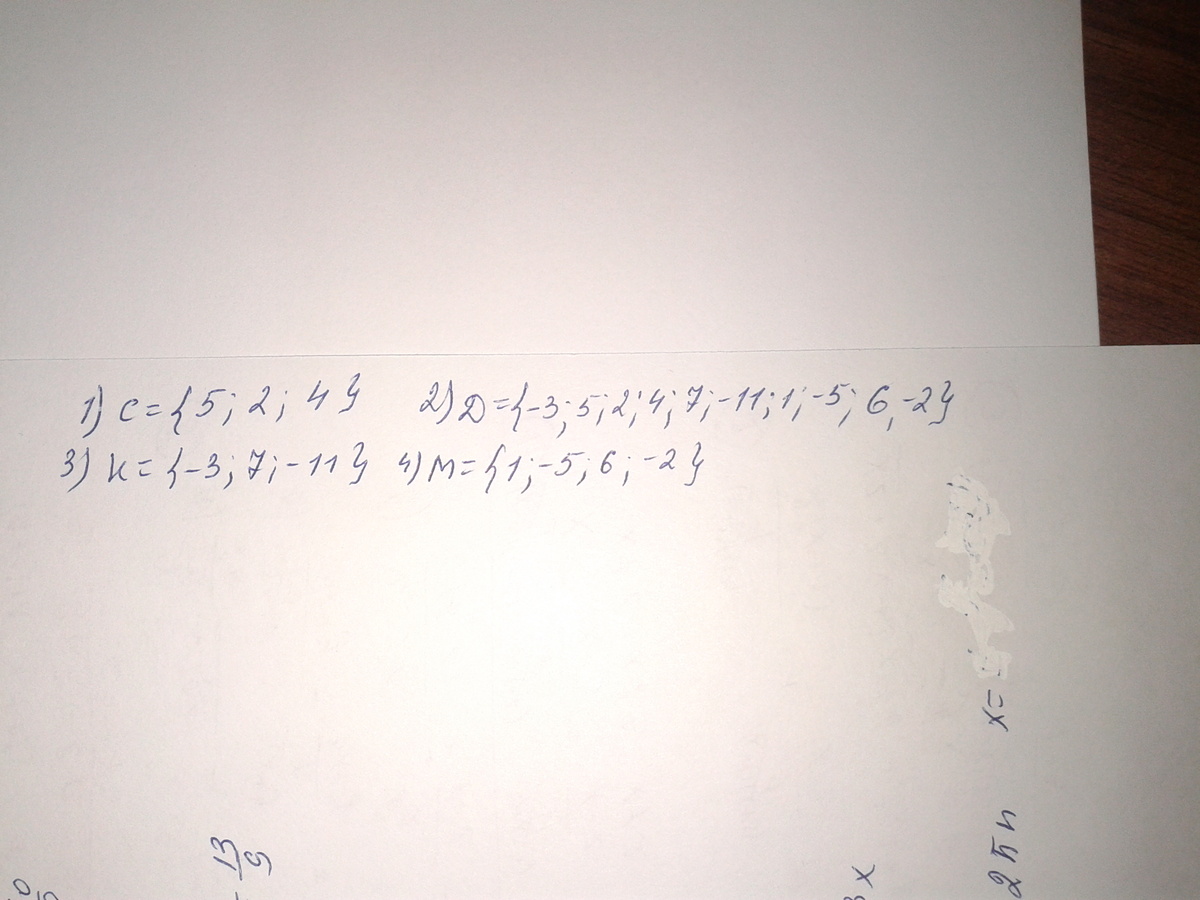 1) C={5; 2; 4} 2) D={-3; 5; 2; 4; 7; -11; 1; -5; 6, -2}
3) K={-3; 7; -11} 4) M={1; -5; 6; -2}
x=
2πn
x
13/9